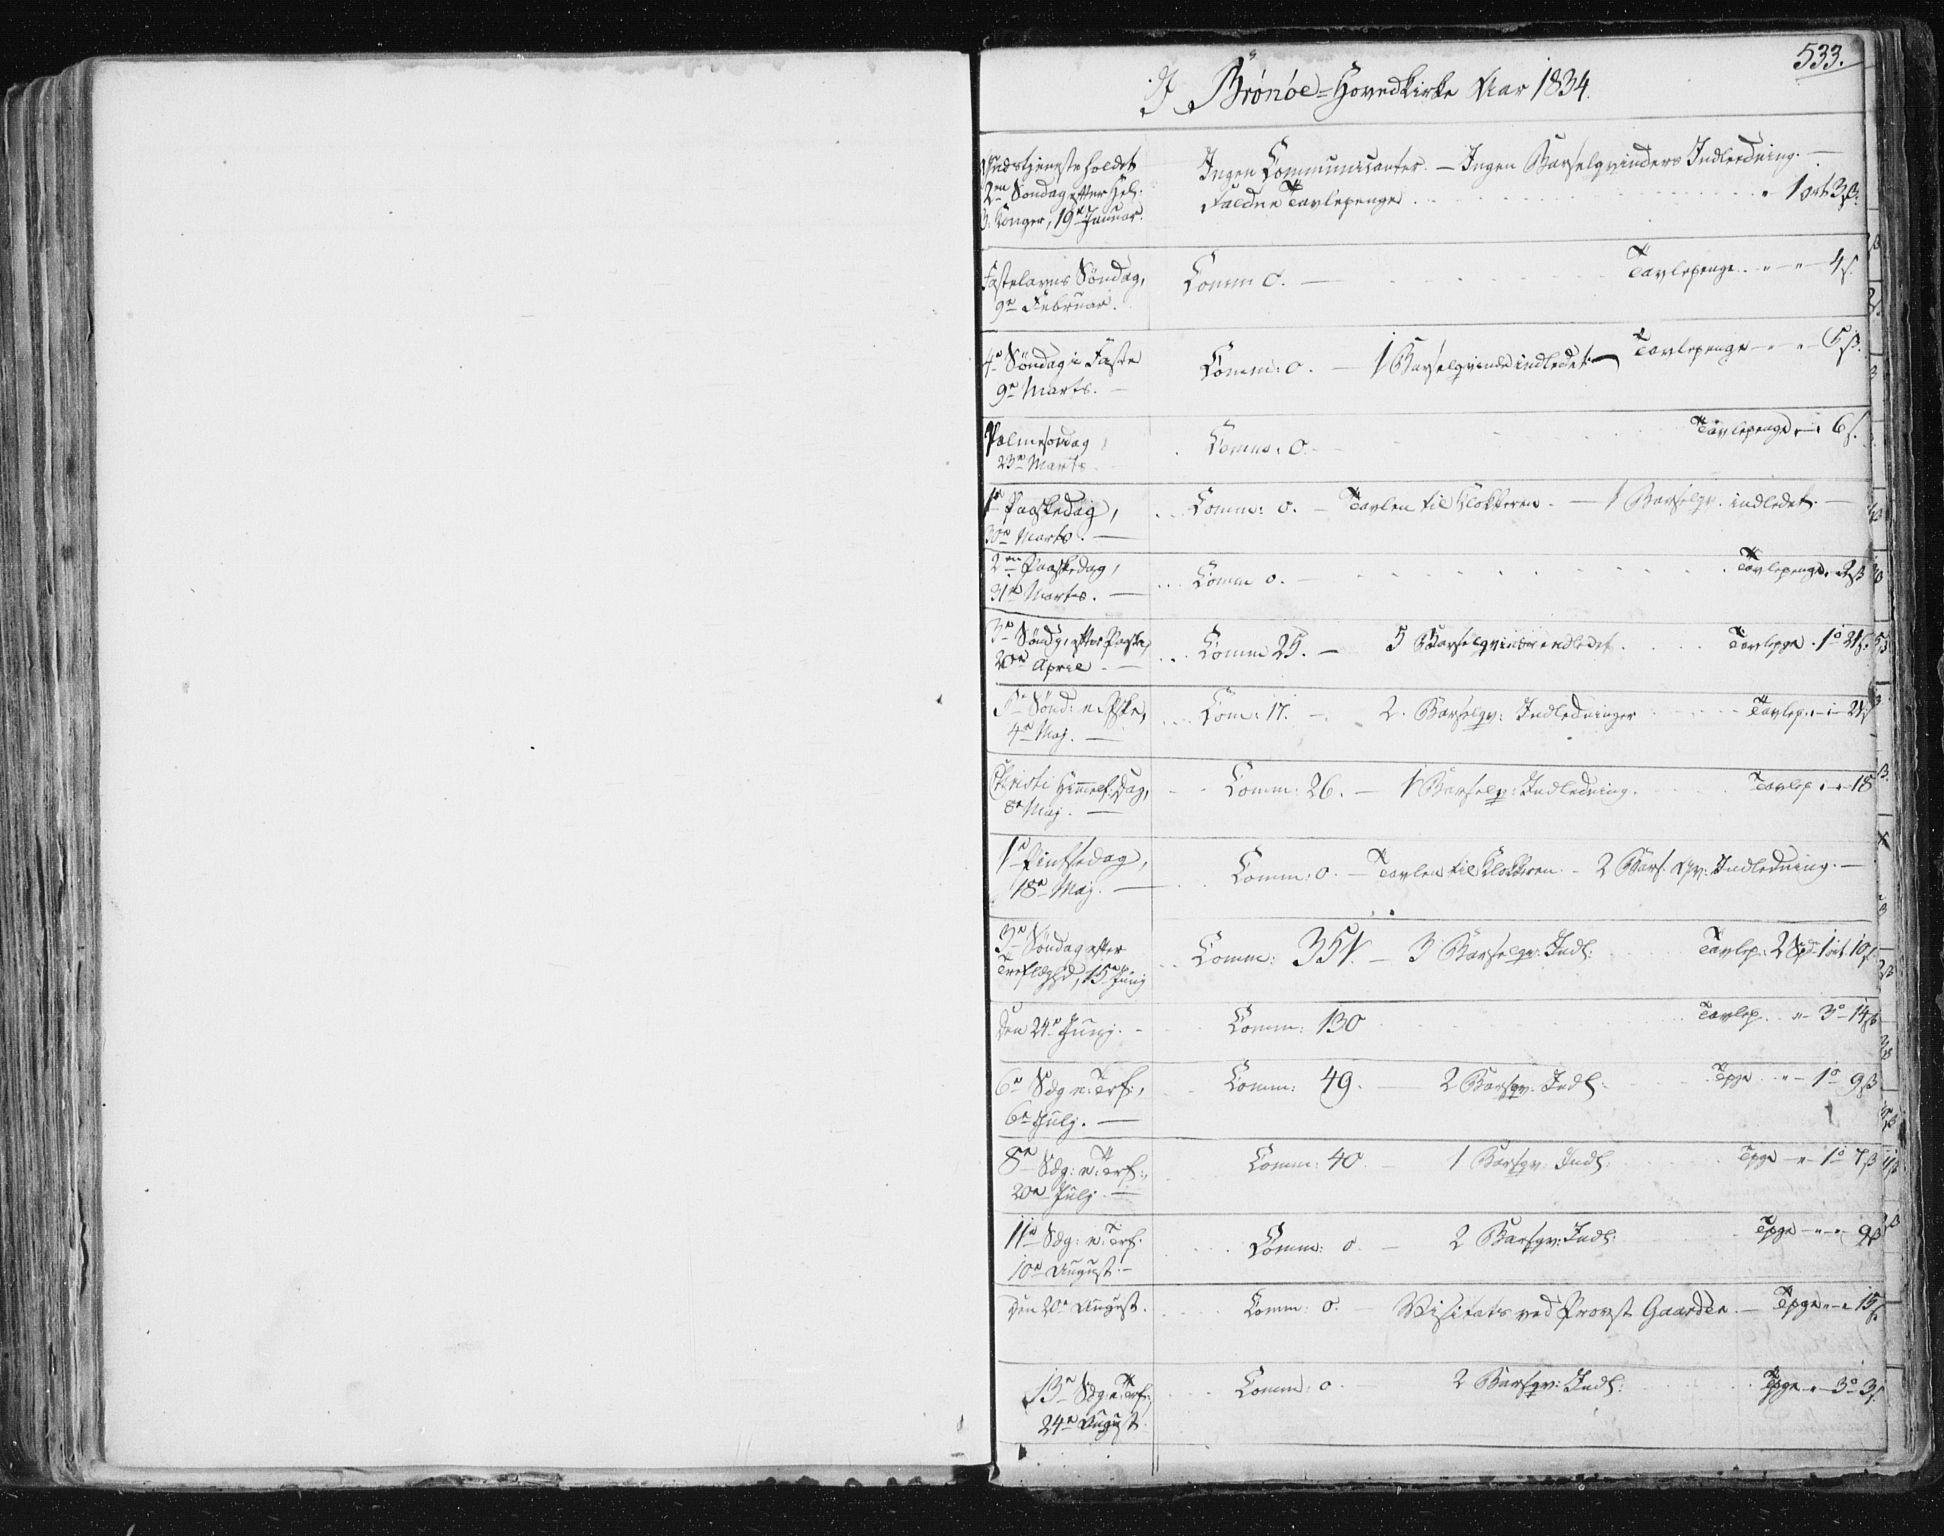 533.
I Brönöe-Hovedkirke Aar 1834.
Gudstjeneste holdet
2en Søndag efter Hel:
3 Konger, 19e Januar.
Ingen Communicanter. — Ingen Barselqvinders Indledning. —
Faldne Tavlepenge . . . 1 ort 3 ß.
Fastelavns Søndag,
9e Februar.
Comm 0. — Tavlepenge . . 4 ß.
4e Søndag i Faste
9e Marts. —
Comm: 0. — 1 Barselqvinde indledet — Tavlepenge — 5 ß.
Palmesøndag,
23e Marts
Comm: 0. Tavlepenge 6 ß.
1e Paaskedag,
30e Marts. —
Comm: 0. — Tavlen til Klokkeren. — 1 Barselqv. indledet. —
2en Paaskedag,
31e Marts. —
Comm 0. — Tavlepenge
3e Sønd: efter Paaske,
20e April. —
Comm 25. — 5 Barselqvinder indledet Tavlepge . 1o 21 ß.
5e Sønd: e. Pske,
4e Maj. —
Com: 17. — 2. Barselqv: Indledninger Tavlep. 21 ß
Christi Himmelf: Dag,
8e Maj. —
Comm: 26. — 1 Barselqv: Indledning. Tavlep. 18
1e Pintsedag,
18e Maj. —
Comm: 0. — Tavlen til Klokkeren. — 2 Bars. Qv: Indledning. —
3e Søndag efter
Trefoldighd, 15e Junj
Comm: 351. — 3 Barselqv: Indl: Tavlep: 2 Spd 1 ort 10 ß
Den 24e Junj. —
Comm: 130 Tavlep. 3o 14 ß
6e Sdg e: Trf:,
6e Julj. —
Comm: 49. — 2 Barsqv: Indl: Tpge — 1o 9 ß
8e Sdg: e: Trf:,
20e Julj. —
Comm: 40. — 1 Barsqv: Indl: Tpge — 1o 7 ß
11e Sdg: e: Trf:
10e August. —
Comm: 0. — 2 Barsqv: Indl: Tpge — 9 ß
Den 20e August.
Comm: 0. — Visitats ved Provst Gaarder — Tpge 15 ß.
13e Sdg: e: Trf:,
24e August.
Comm: 0 — 2 Barsqv: Indl: Tpge — 3o 3 ß.